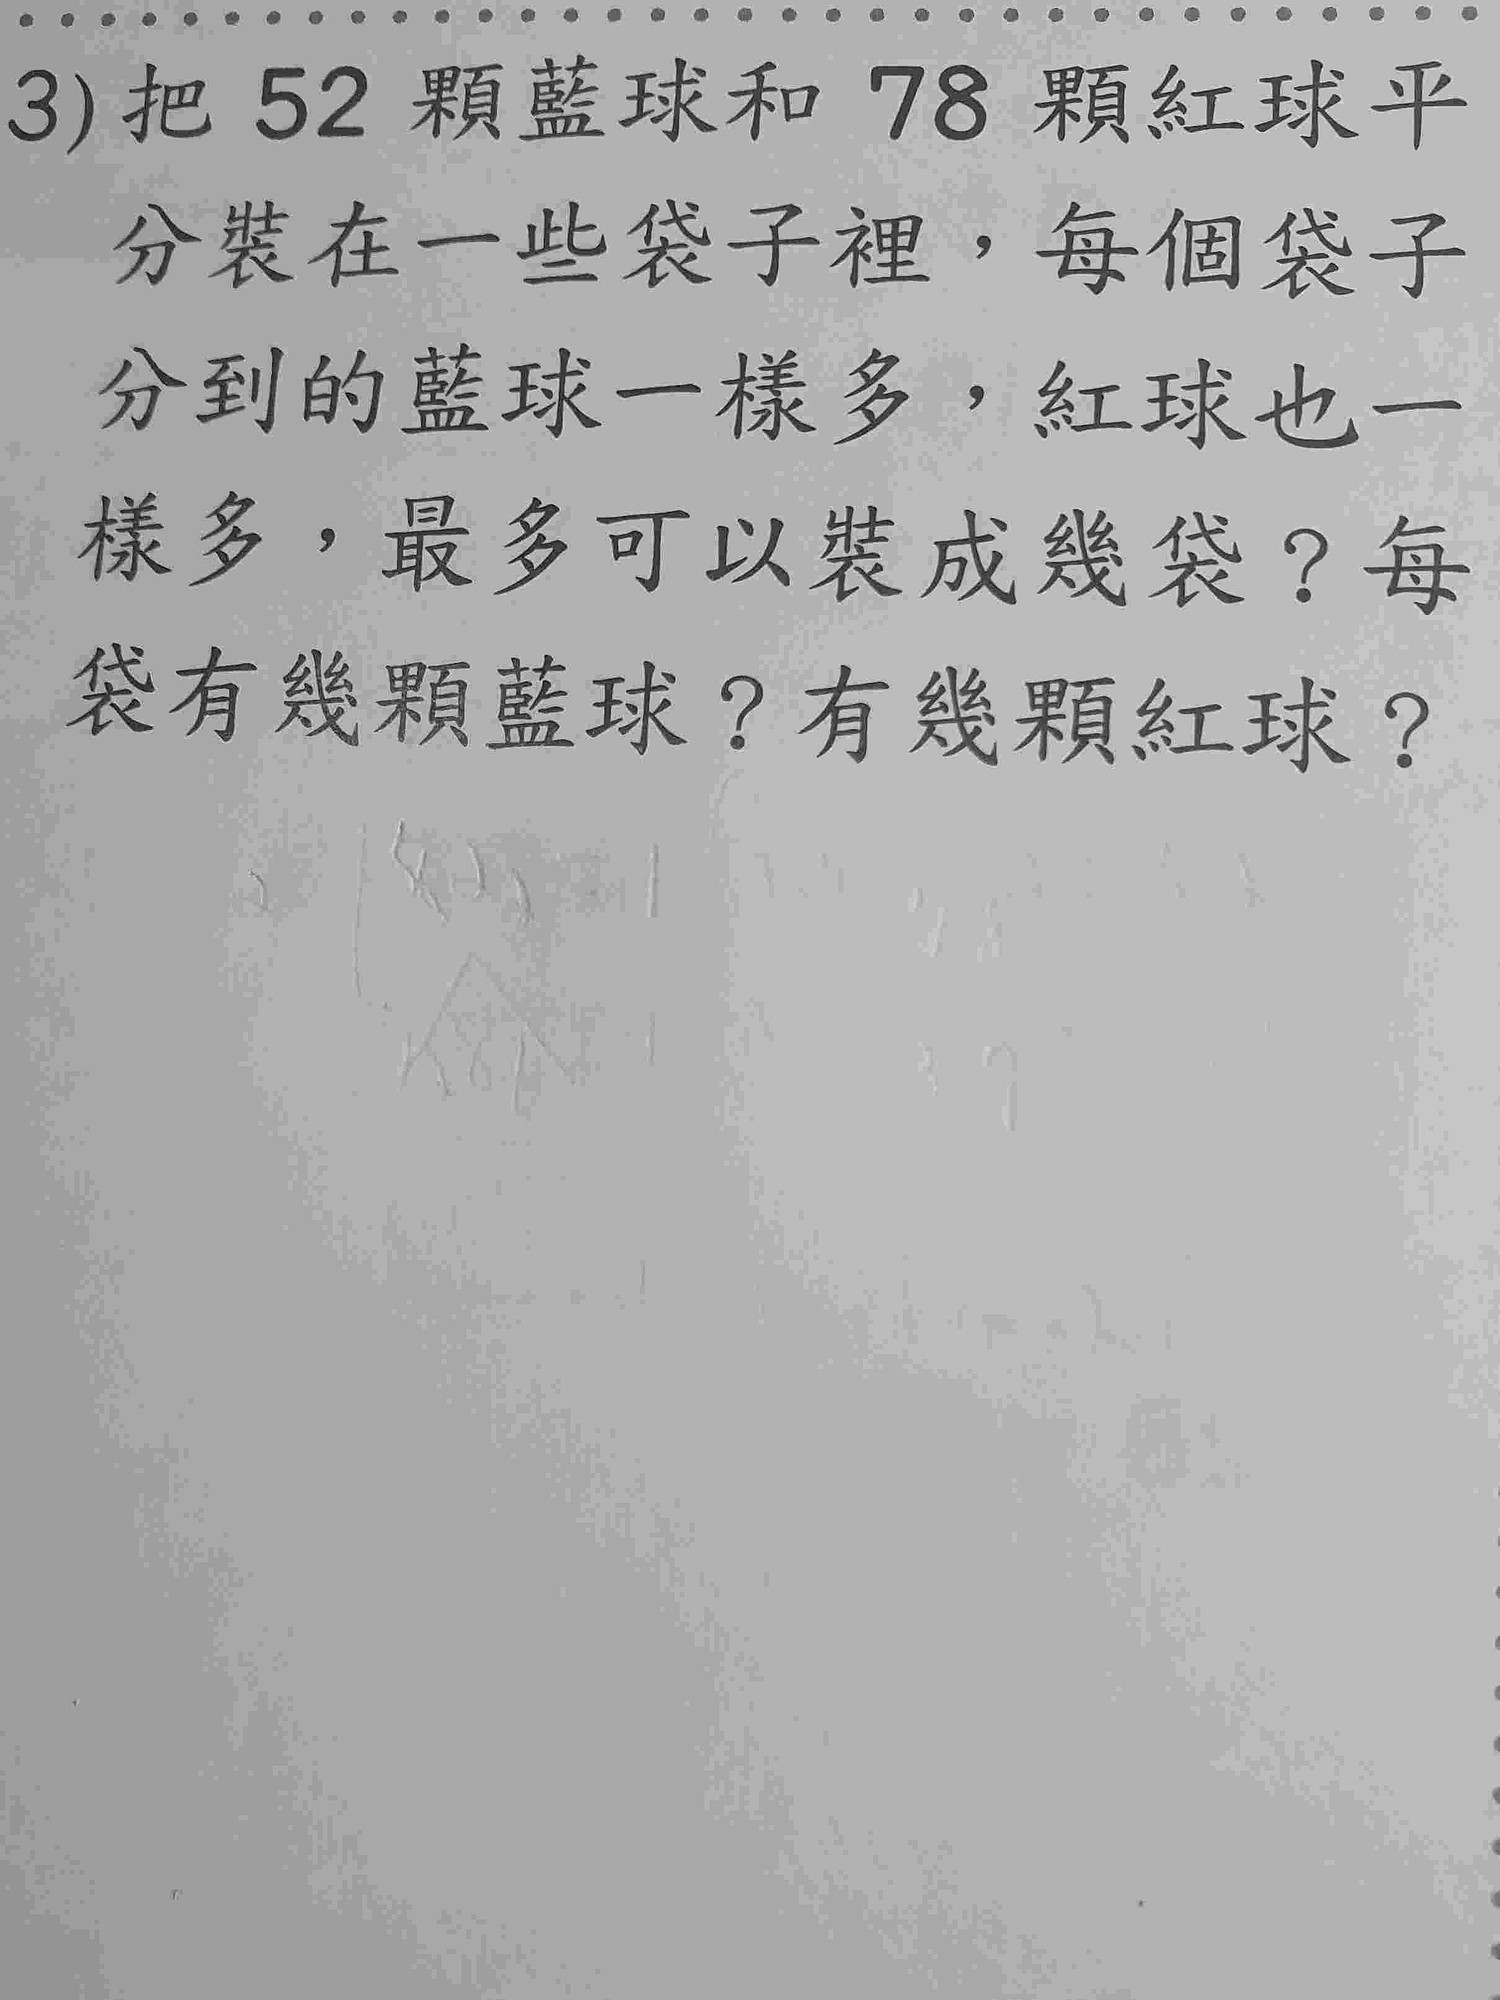 3) 把 52 顆藍球和 78 顆紅球平
分裝在一些袋子裡，每個袋子
分到的藍球一樣多，紅球也一
樣多，最多可以裝成幾袋？每
袋有幾顆藍球？有幾顆紅球？